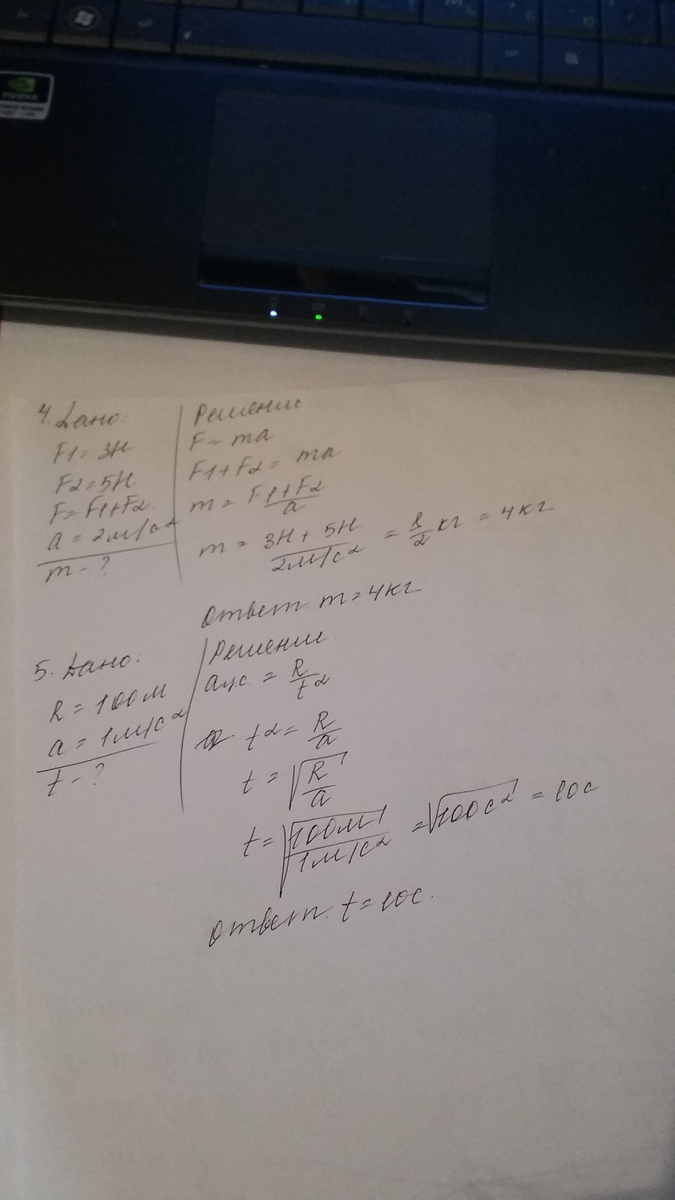 4. Дано:
F1 = 3Н
F2 = 5Н
F = F1+F2
a = 2м/с2
m - ?
Решение
F = ma
F1+F2 = ma
m = F1+F2 / a
m = 3Н + 5Н / 2м/с2 = 8/2 кг = 4 кг
Ответ: m = 4 кг
5. Дано:
R = 100м
a = 1м/с2
t - ?
Решение
aцс = R / t2
t2 = R / a
t = √R / a
t = √100м / 1м/с2 = √100с2 = 10с
Ответ: t = 10с.